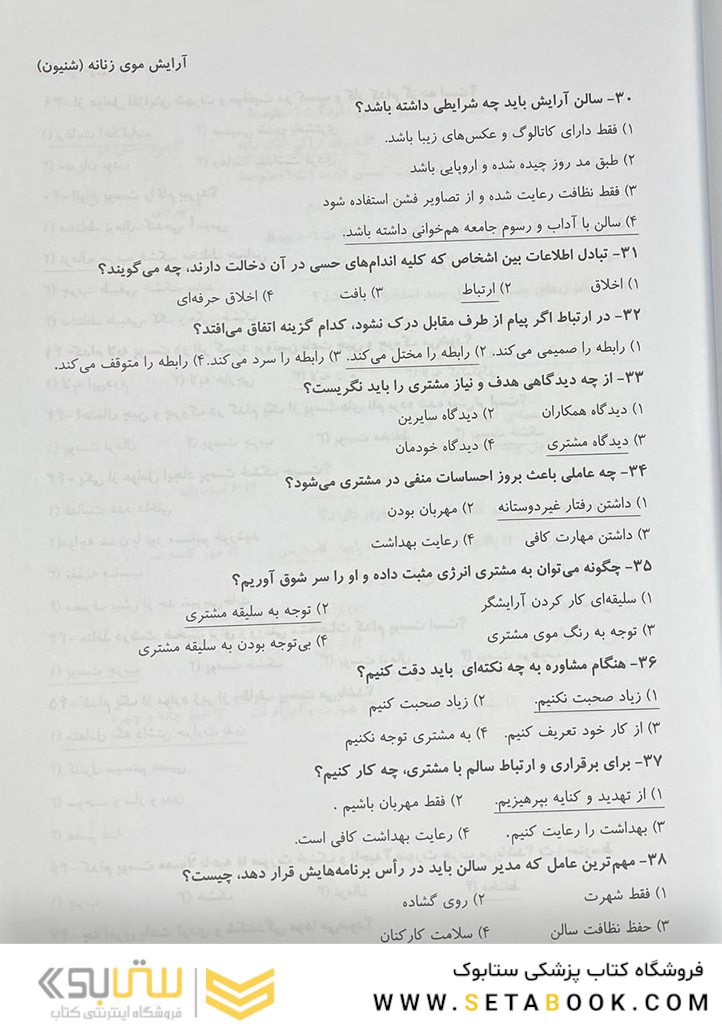 آرایش موی زنانه (شنیون)
۳۰- سالن آرایش باید چه شرایطی داشته باشد؟
۱) فقط دارای کاتالوگ و عکس‌های زیبا باشد.
۲) طبق مد روز چیده شده و اروپایی باشد
۳) فقط نظافت رعایت شده و از تصاویر فشن استفاده شود
۴) سالن با آداب و رسوم جامعه هم‌خوانی داشته باشد.
۳۱- تبادل اطلاعات بین اشخاص که کلیه اندام‌های حسی در آن دخالت دارند، چه می‌گویند؟
۱) اخلاق ۲) ارتباط ۳) بافت ۴) اخلاق حرفه‌ای
۳۲- در ارتباط اگر پیام از طرف مقابل درک نشود، کدام گزینه اتفاق می‌افتد؟
۱) رابطه را صمیمی می‌کند. ۲) رابطه را مختل می‌کند. ۳) رابطه را سرد می‌کند. ۴) رابطه را متوقف می‌کند.
۳۳- از چه دیدگاهی هدف و نیاز مشتری را باید نگریست؟
۱) دیدگاه همکاران ۲) دیدگاه سایرین
۳) دیدگاه مشتری ۴) دیدگاه خودمان
۳۴- چه عاملی باعث بروز احساسات منفی در مشتری می‌شود؟
۱) داشتن رفتار غیردوستانه ۲) مهربان بودن
۳) داشتن مهارت کافی ۴) رعایت بهداشت
۳۵- چگونه می‌توان به مشتری انرژی مثبت داده و او را سر شوق آوریم؟
۱) سلیقه‌ای کار کردن آرایشگر ۲) توجه به سلیقه مشتری
۳) توجه به رنگ موی مشتری ۴) بی‌توجه بودن به سلیقه مشتری
۳۶- هنگام مشاوره به چه نکته‌ای باید دقت کنیم؟
۱) زیاد صحبت نکنیم. ۲) زیاد صحبت کنیم
۳) از کار خود تعریف کنیم. ۴) به مشتری توجه نکنیم
۳۷- برای برقراری و ارتباط سالم با مشتری، چه کار کنیم؟
۱) از تهدید و کنایه بپرهیزیم. ۲) فقط مهربان باشیم .
۳) بهداشت را رعایت کنیم. ۴) رعایت بهداشت کافی است.
۳۸- مهم‌ترین عامل که مدیر سالن باید در رأس برنامه‌هایش قرار دهد، چیست؟
۱) فقط شهرت ۲) روی گشاده
۳) حفظ نظافت سالن ۴) سلامت کارکنان
فروشگاه کتاب پزشکی ستابوک
WWW.SETABOOK.COM
ستابوک
فروشگاه اینترنتی کتاب